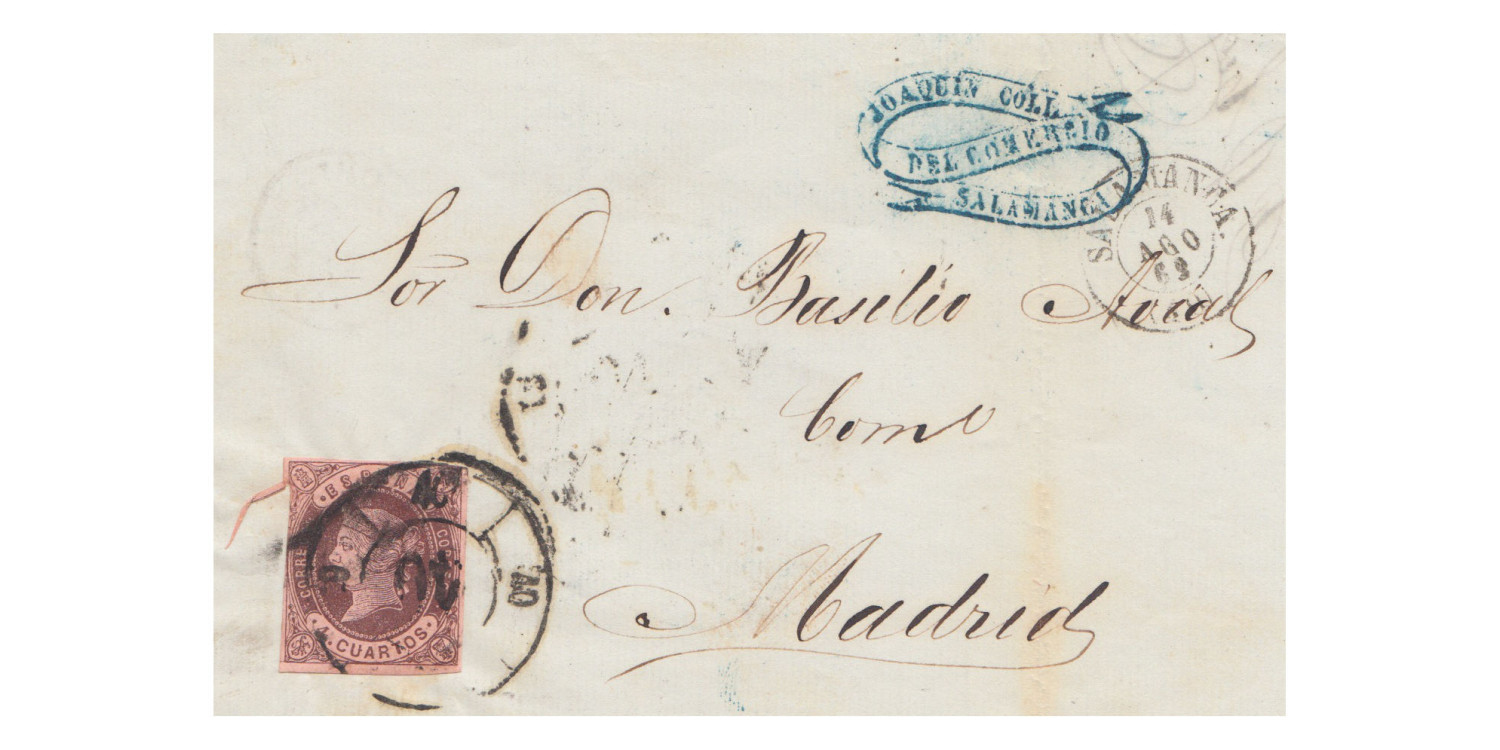 JOAQUIN COLL
DEL COMERCIO
SALAMANCA
SALAMANCA.
14
AGO
63
Sor Don. Basilio
Com⁰
Madrid
ESPAÑA
CORREOS
4. CUARTOS.